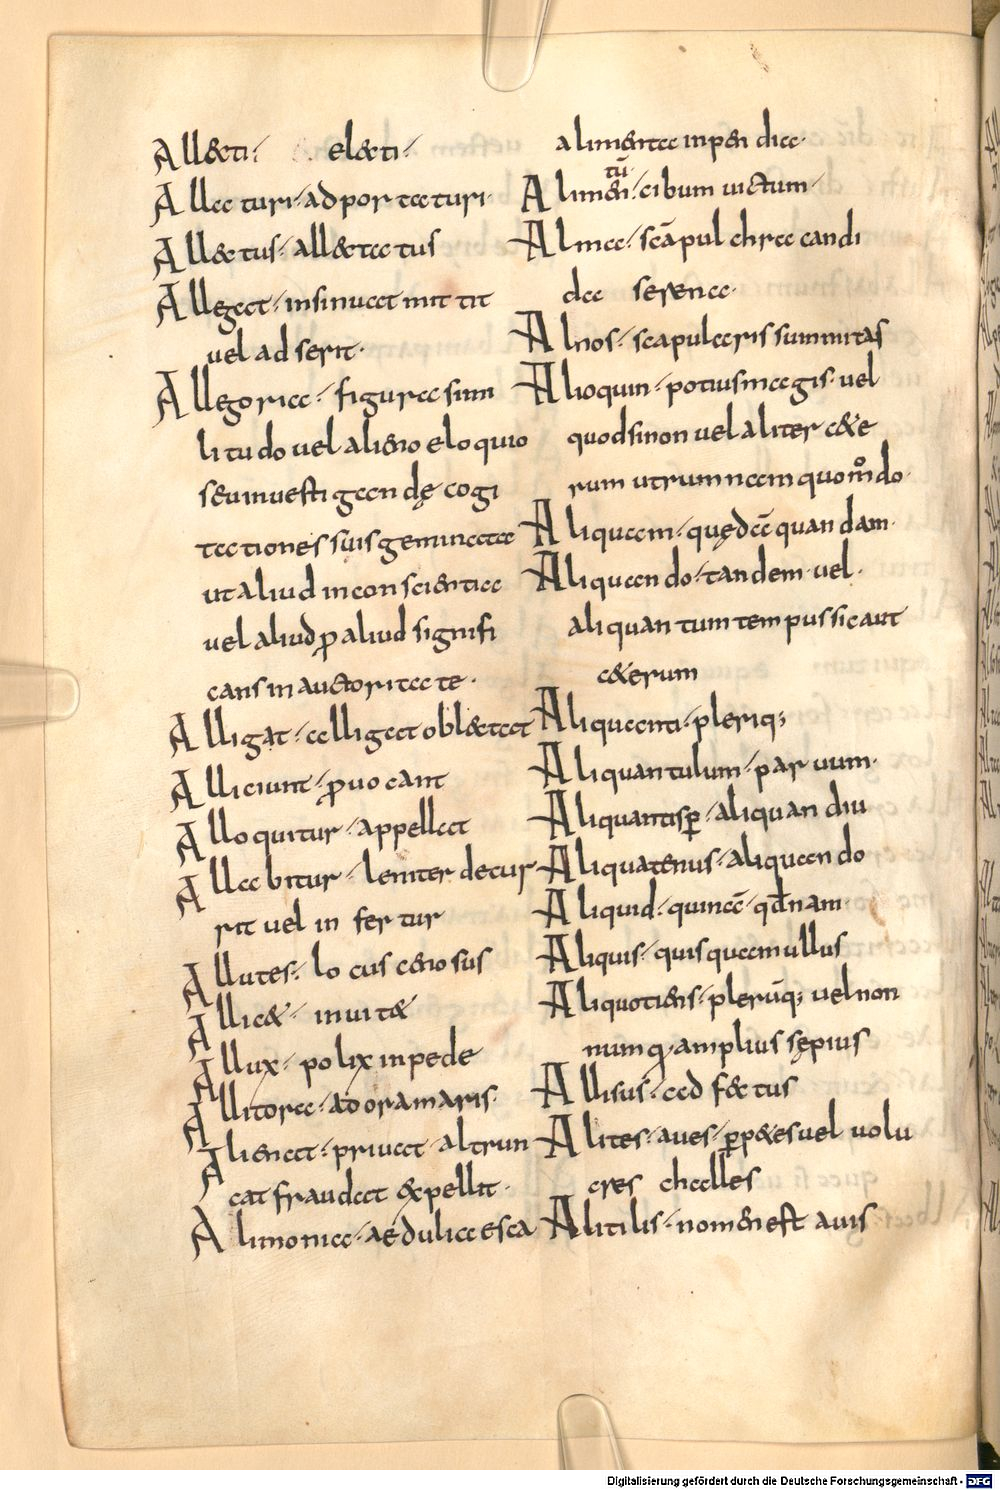 All&ti· el&ti·
Allaturi· adportaturi·
All&tus· all&tatus
Allegat· insinuat mittit
uel adserit·
Allegoria· figura simi
litudo uel alieno eloquio
seu inuestigandę cogi
tationes suis geminatae
ut aliud in conscientia
uel aliud ꝓ aliud signifi
cans in auctoritate·
Alligat· alligat obl&tat
Alliciunt· ꝓuocant
Alloquitur· appellat
Allabitur· leniter decur
rit uel infertur
Allutes· locus cenosus
Allic&· inuit&
Allux· polix in pede
Allitora· ad ora maris·
Alienat· priuat altrun
cat fraudat expellit·
Alimonia· aedulia esca
alimenta inpendia·
Alimentū· cibum uictum·
Alma· scā pulchra candi
da serena·
Alnos· scapularis summitas
Alioquin· potius magis· uel
quod si non uel aliter c&e
rum utrum nam quomodo·
Aliquam· quędā quandam·
Aliquando· tandem· uel·
aliquantum tempus sicaut
c&erum
Aliquanti· pleriq;
Aliquantulum· paruum·
Aliquantisꝑ· aliquandiu
Aliquatenus· aliquando
Aliquid· quinā· qđnam·
Aliquis· quisquam ullus
Aliquotiens· plerūq; uel non
numqͣ· amplius sępius
Allisus· adfectus
Alites· aues· ꝑp&es uel uolu
cres challes
Alitilis· nomen est auis
Digitalisierung gefördert durch die Deutsche Forschungsgemeinschaft - DFG